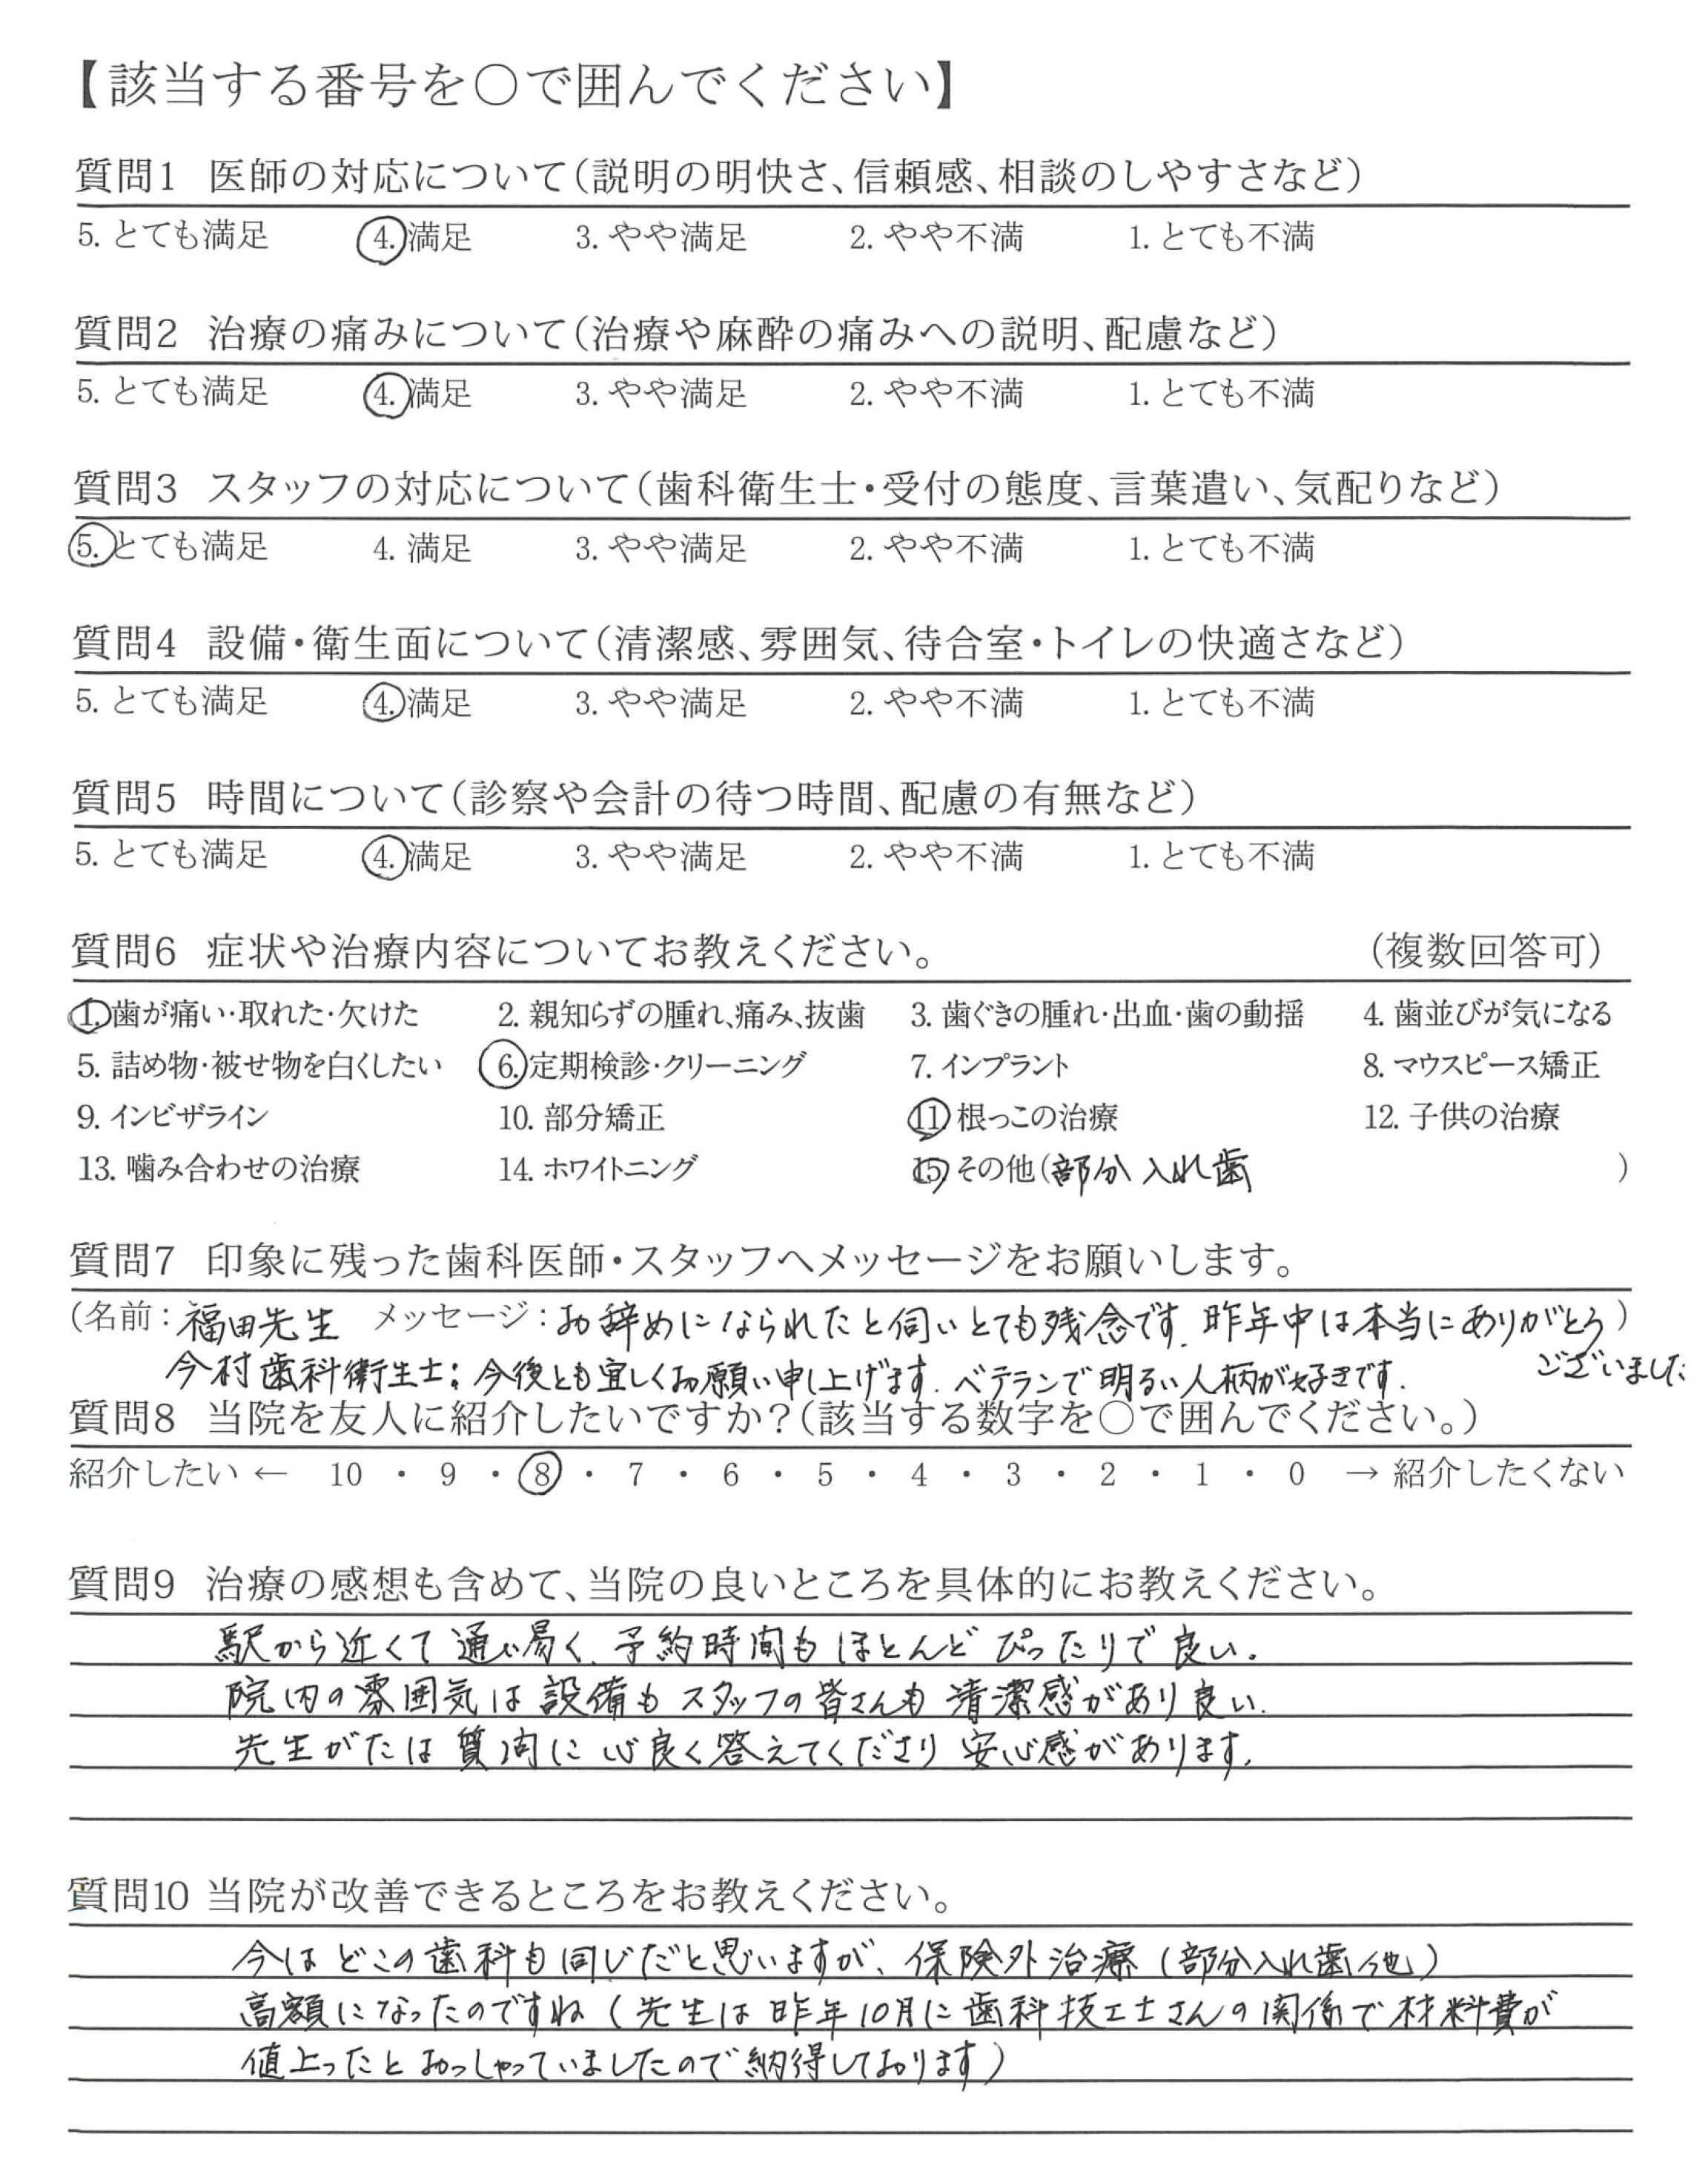 【該当する番号を○で囲んでください】
質問1 医師の対応について(説明の明快さ、信頼感、相談のしやすさなど)
5. とても満足 4. 満足 3. やや満足 2. やや不満 1. とても不満
質問2 治療の痛みについて(治療や麻酔の痛みへの説明、配慮など)
5. とても満足 4. 満足 3. やや満足 2. やや不満 1. とても不満
質問3 スタッフの対応について(歯科衛生士・受付の態度、言葉遣い、気配りなど)
5. とても満足 4. 満足 3. やや満足 2. やや不満 1. とても不満
質問4 設備・衛生面について(清潔感、雰囲気、待合室・トイレの快適さなど)
5. とても満足 4. 満足 3. やや満足 2. やや不満 1. とても不満
質問5 時間について(診察や会計の待つ時間、配慮の有無など)
5. とても満足 4. 満足 3. やや満足 2. やや不満 1. とても不満
質問6 症状や治療内容についてお教えください。 (複数回答可)
1. 歯が痛い・取れた・欠けた 2. 親知らずの腫れ、痛み、抜歯 3. 歯ぐきの腫れ・出血・歯の動揺 4. 歯並びが気になる
5. 詰め物・被せ物を白くしたい 6. 定期検診・クリーニング 7. インプラント 8. マウスピース矯正
9. インビザライン 10. 部分矯正 11. 根っこの治療 12. 子供の治療
13. 噛み合わせの治療 14. ホワイトニング 15. その他(部分入れ歯 )
質問7 印象に残った歯科医師・スタッフへメッセージをお願いします。
(名前:福田先生 メッセージ:お辞めになられたと伺いとても残念です. 昨年中は本当にありがとう)
ございました
今村歯科衛生士:今後とも宜しくお願い申し上げます. ベテランで明るい人柄が好きです.
質問8 当院を友人に紹介したいですか?(該当する数字を○で囲んでください。)
紹介したい ← 10 ・ 9 ・ 8 ・ 7 ・ 6 ・ 5 ・ 4 ・ 3 ・ 2 ・ 1 ・ 0 → 紹介したくない
質問9 治療の感想も含めて、当院の良いところを具体的にお教えください。
駅から近くて通い易く、予約時間もほとんどぴったりで良い.
院内の雰囲気は設備もスタッフの皆さんも清潔感があり良い.
先生がたは質問に心良く答えてくださり安心感があります.
質問10 当院が改善できるところをお教えください。
今はどこの歯科も同じだと思いますが、保険外治療(部分入れ歯他)
高額になったのですね(先生は昨年10月に歯科技工士さんの関係で材料費が
値上ったとおっしゃっていましたので納得しております)